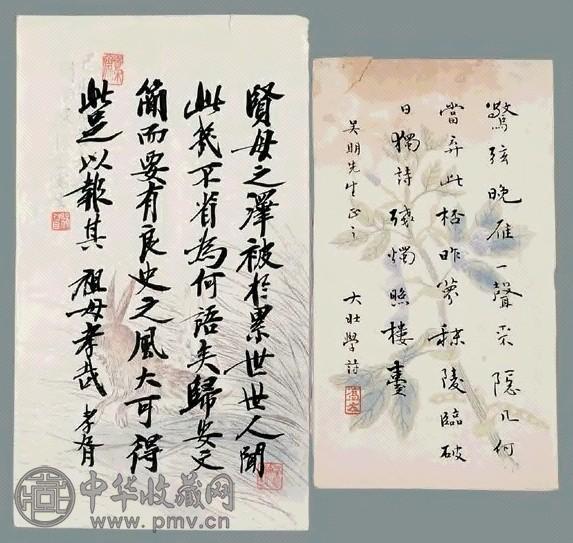 賢母之澤被於累世世人聞
此我不省為何語矣歸安文
簡而要有良史之風大可得
此足以報其祖母孝哉 孝胥
驚弦晚雁一聲來隱几何
當弃此梧昨夢秣陵臨破
日獨詩殘燭照樓臺
吴明先生正之
大壯學詩
中华收藏网
www.pmv.cn